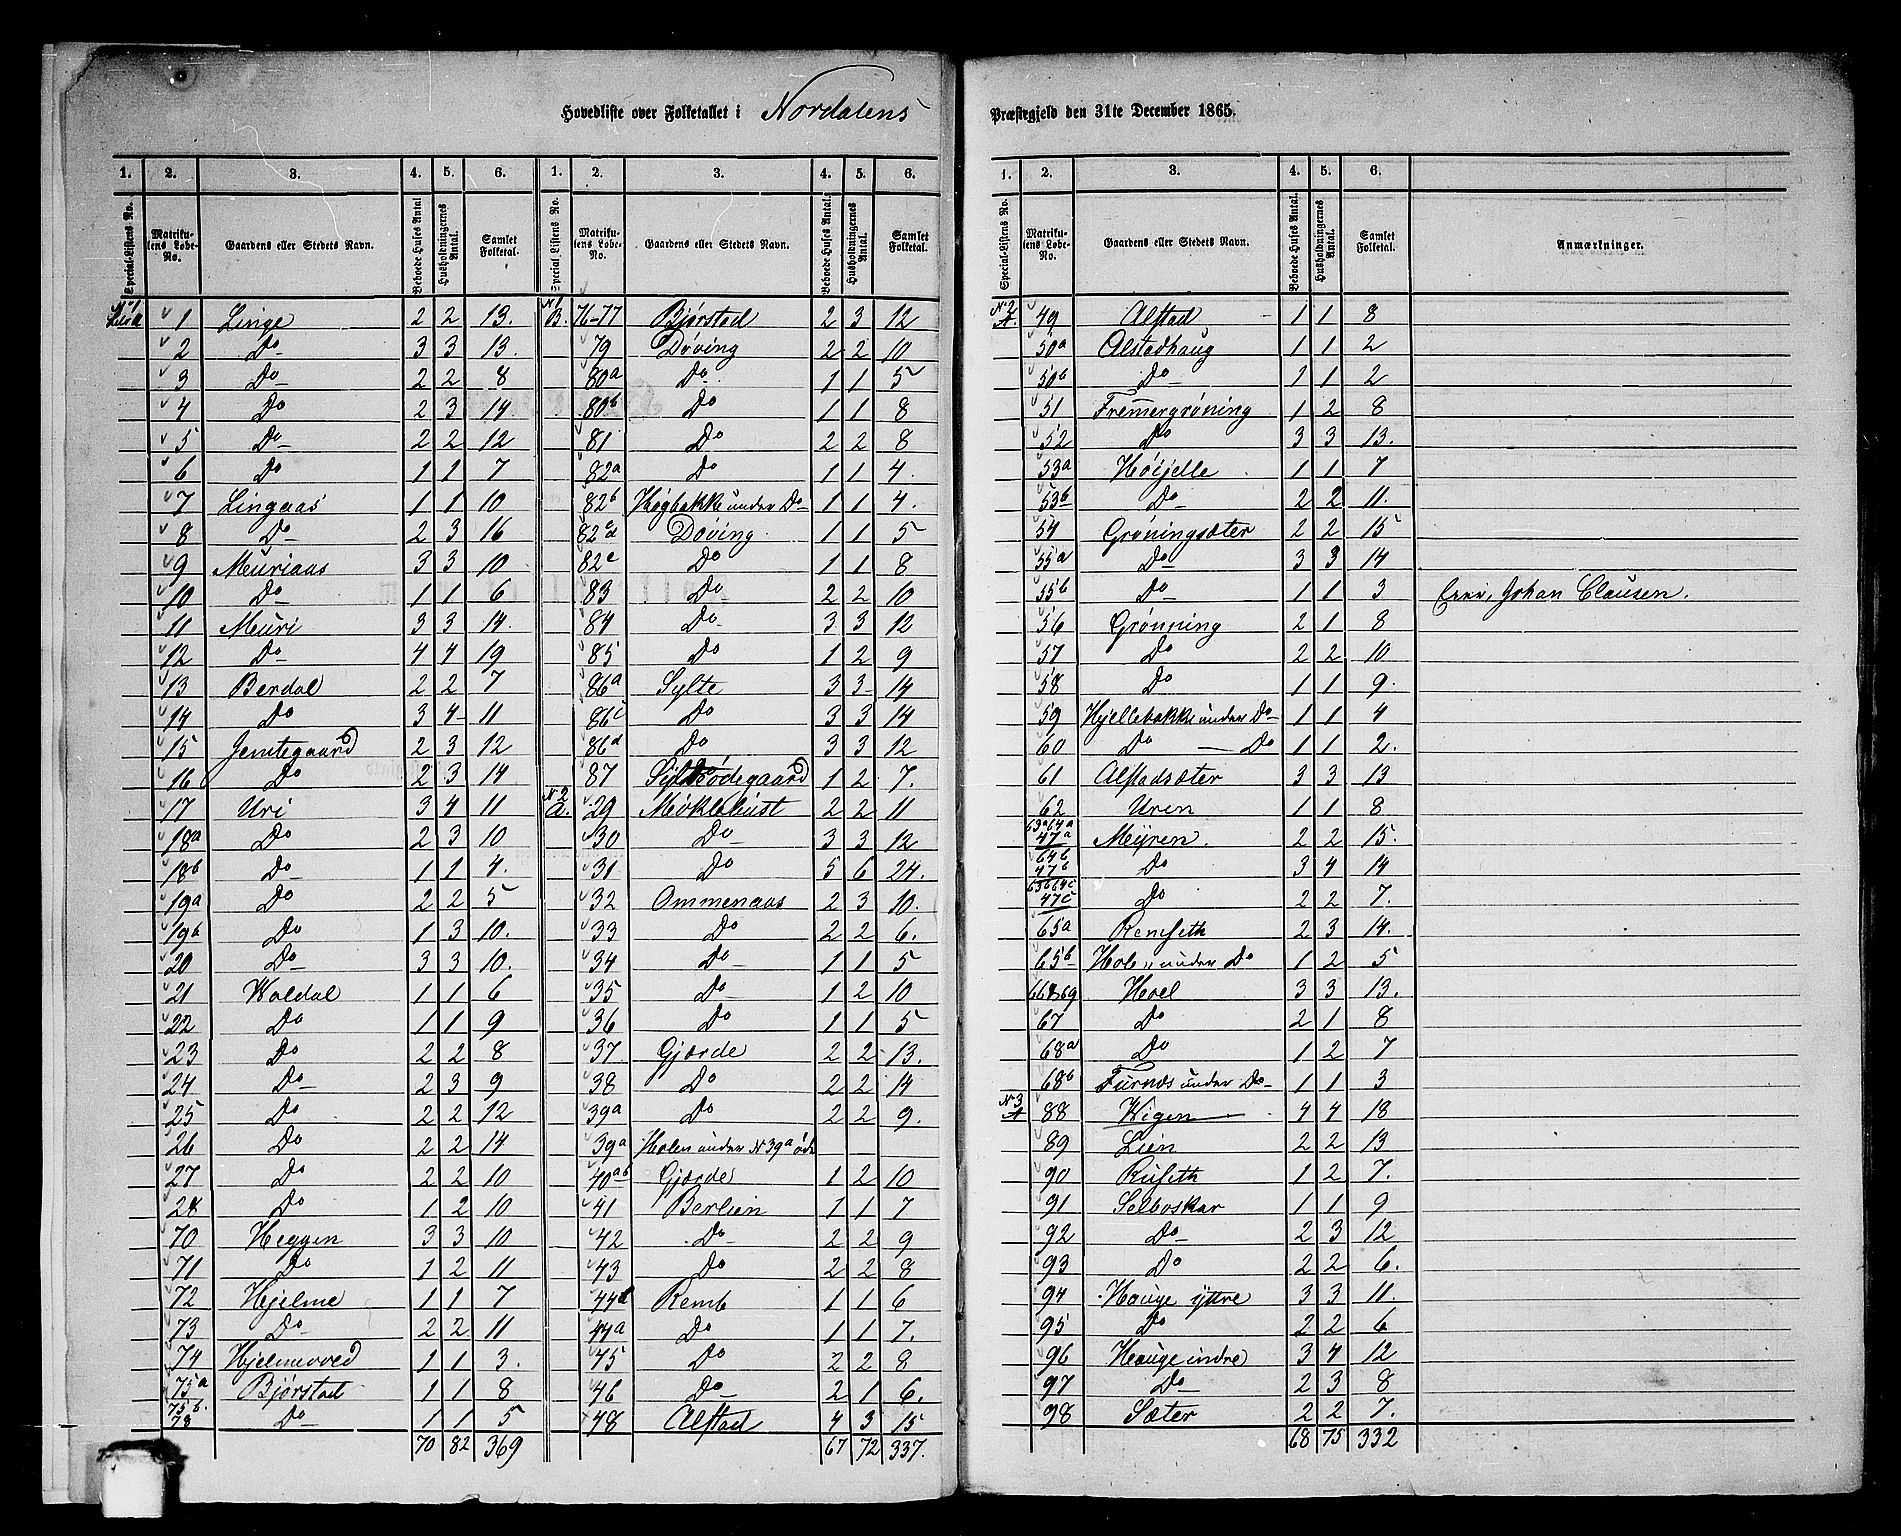 Hovedliste over Folketallet i Nordalens Præstegjeld den 31te December 1865.
1. 2. 3. 4. 5. 6. 1. 2. 3. 4. 5. 6.
Special-Listens No. Matrikulens Lobe-No. Gaardens eller Stedets Navn. Beboede Huses Antal Husholdningernes Antal. Samlet Folketal. Special Listens No. Matrikulens Lobe-No. Gaardens eller Stedets Navn. Beboede Huses Antal. Husholdningernes Antal. Samlet Folketal.
1 Linge 2 2 13.
2 Do 3 3 13.
3 Do 2 2 8
4 Do 2 3 14
5 Do 2 2 12
6 Do 1 1 7
7 Lingaas 1 1 10
8 Do 2 3 16
9 Muriaas 3 3 10
10 Do 1 1 6
11 Muri 3 3 14.
12 Do 4 4 19
13 Berdal 2 2 7
14 Do 3 4 11
15 Jemtegaard 2 3 12
16 Do 2 3 14
17 Uri 3 4 11
18a Do 2 3 10
18b Do 1 1 4.
19a Do 2 2 5
19b Do 1 3 10.
20 Do 3 3 10.
21 Woldal 1 1 6
22 Do 1 1 9
23 Do 2 2 8
24 Do 2 3 9
25 Do 2 2 12
26 Do 2 2 14
27 Do 2 2 10
28 Do 1 2 10
70 Heggen 3 3 10
71 Do 1 2 11
72 Hjelme 1 1 7
73 Do 2 2 11
74 Hjelmevold 1 1 3.
75a Bjørstad 1 1 8
75b. 78 Do 1 1 5
70 82 369
No 1 B. 76-77 Bjørstad 2 3 12
79 Døving 2 2 10
80a Do 1 1 5
80b Do 1 1 8
81 Do 2 2 8
82a Do 1 1 4.
82b Høgbakke under Do 1 1 4.
82cd Døving 1 1 5
82e Do 1 1 8
83 Do 2 2 10
84 Do 3 3 12
85 Do 1 2 9
86a Sylte 3 3 14
86c Do 3 3 14
86d Do 3 3 12
87 Sylteødegaard 1 2 7.
No 2 A. 29 Møklebust 2 2 11
30 Do 3 3 12
31 Do 5 6 24.
32 Ommenaas 2 3 10.
33 Do 2 2 6.
34 Do 1 1 5
35 Do 1 2 10
36 Do 1 1 5
37 Gjærde 2 2 13.
38 Do 2 2 14
39a Do 2 2 9.
39a Holen under N 39a øde
40ab Gjærde 1 2 10
41 Berlien 1 1 7
42 Do 2 2 9
43 Do 2 2 8
44 Remb 1 1 6
44a Do 1 1 7.
45 Do 2 2 8
46 Do 2 1 6.
48 Alstad 4 3 15
67 72 337.
1. 2. 3. 4. 5. 6.
Special-Listens No. Matrikulens Lobe-No. Gaardens eller Stedets Navn. Beboede Huses Antal. Husholdningernes Antal. Samlet Folketal. Anmærkninger.
No 2 A. 49 Alstad 1 1 8
50a Alstadhaug 1 1 2
50b Do 1 1 2
51 Fremergrøning 1 2 8
52 Do 3 3 13.
53a Høijelle 1 1 7
53b Do 2 2 11.
54 Grøningsæter 2 2 15
55a Do 3 3 14
55b Do 1 1 3 Johan Clausen.
56 Grønning 2 1 8
57 Do 2 2 10
58 Do 1 1 9.
59 Hjellebakke under Do 1 1 4
60 Do — Do 1 1 2.
61 Alstadsæter 3 3 13
62 Uren 1 1 8
63a64a 47a Meyren. 2 2 15.
64b 47b Do 3 4 14
63b64c 47c Do 2 2 7.
65a Remseth 2 3 14.
65b Hole under Do 1 2 5
66&69 Hoel 3 3 13.
67 Do 2 1 8
68a Do 1 2 7
68b Furnæs under Do 1 1 3
No 3 A 88 Wigen 4 4 18
89 Lien 2 2 13
90 Ruseth 1 2 7.
91 Selboskar 1 1 9
92 Do 2 3 12
93 Do 2 2 6.
94 Houge yttre 3 3 11.
95 Do 2 2 6
96 Houge indre 3 4 12
97 Do 2 3 8
98 Sæter 2 2 7.
68 75 332